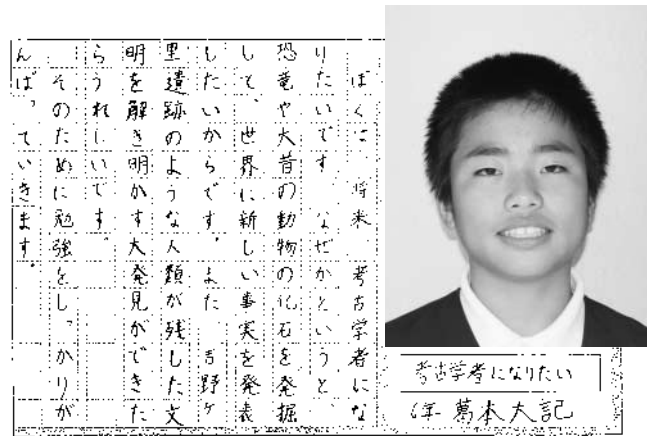 ぼくは、将来、考古学者にな
りたいです。なぜかというと、
恐竜や大昔の動物の化石を発掘
して、世界に新しい事実を発表
したいからです。また、吉野ヶ
里遺跡のような人類が残した文
明を解き明かす大発見ができた
らうれしいです。
そのために勉強をしっかりが
んばっていきます。
考古学者になりたい
6年 萬本大記